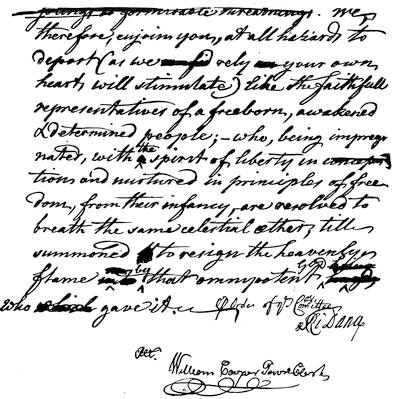 youngs or formidable threatnings. We,
therefore, enjoin you, at all hazards to
deport (as we rely on your own
hearts will stimulate) like the faithfull
representatives of a freeborn, awakened
& determined people; - who, being impreg
nated, with the spirit of liberty in concep
tions and nurtured in principles of free
dom, from their infancy, are resolved to
breath the same celestial æther, till
summoned to resign the heavenly
flame by that omnipotent God
who gave it. Order of ye Comittee
Ri Dana
Att.
William Cooper Town Clerk